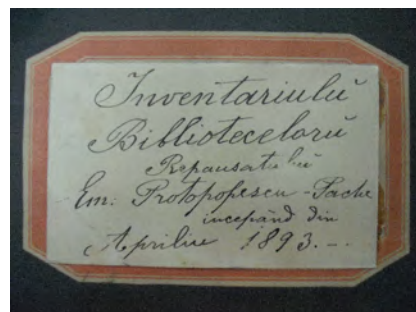 Inventariulŭ
Bibliotecelorŭ
Repausatuluĭ
Em: Protopopescu-Pache
incepând din
Aprilie 1893.--